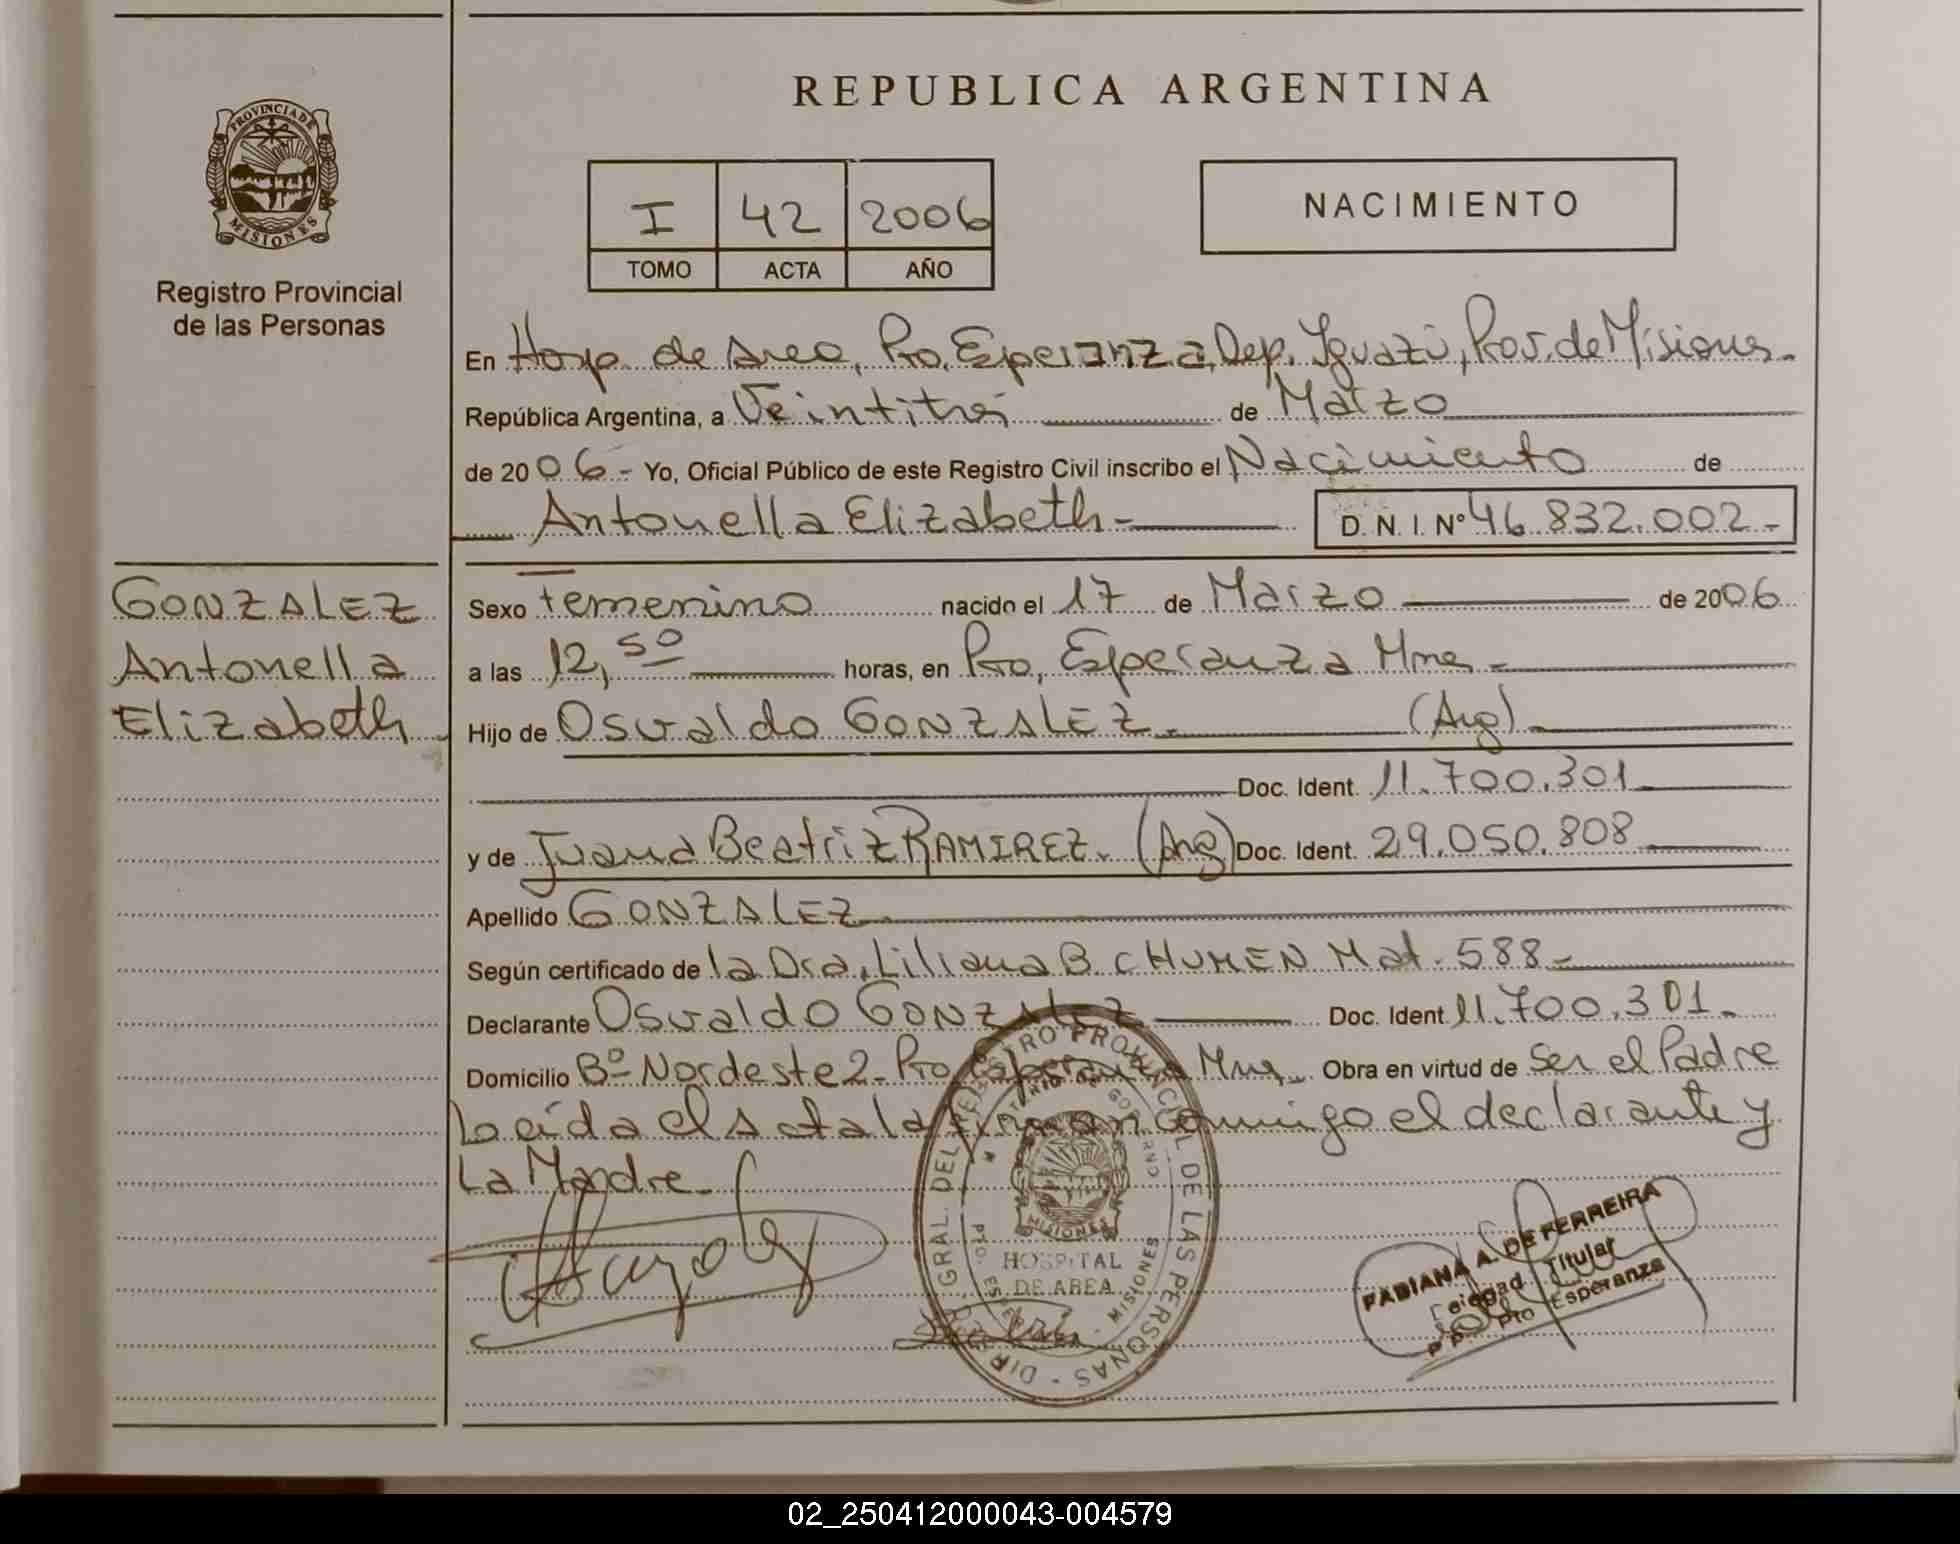 REPUBLICA ARGENTINA
PROVINCIA DE
MISIONES
Registro Provincial
de las Personas
I 42 2006
TOMO ACTA AÑO
NACIMIENTO
En Hosp. de Area, Pto. Esperanza, Dep. Iguazú, Prov. de Misiones.-
República Argentina, a Veintitrés de Marzo
de 2006.- Yo, Oficial Público de este Registro Civil inscribo el Nacimiento de
Antonella Elizabeth.- D. N. I. Nº 46.832.002.-
GONZALEZ
Antonella
Elizabeth.
Sexo Femenino nacido el 17 de Marzo de 2006
a las 12,50 horas, en Pto. Esperanza Mnes.-
Hijo de Osvaldo GONZALEZ.- (Arg).
Doc. Ident. 11.700.301.
y de Juana Beatriz RAMIREZ. (Arg) Doc. Ident. 29.050.808
Apellido GONZALEZ.
Según certificado de la Dra. Liliana B. CHUMEN Mat. 588.-
Declarante Osvaldo GONZALEZ Doc. Ident. 11.700.301.-
Domicilio Bº Nordeste 2- Pto. Esperanza Mnes. Obra en virtud de Ser el Padre
Leída el acta la firman conmigo el declarante y
La Madre.
DIR. GRAL. DEL REGISTRO PROVINCIAL DE LAS PERSONAS
MISIONES
HOSPITAL
DE AREA
MISIONES
FABIANA A. DE FERREIRA
Titular
Pto Esperanza
02_250412000043-004579